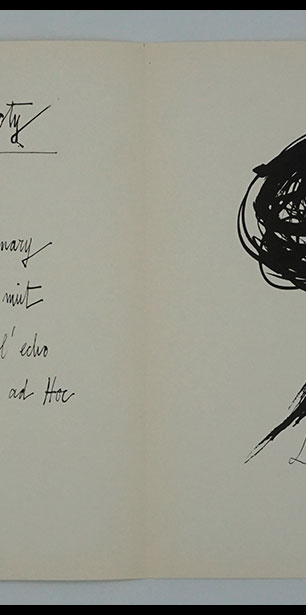 oty
nary
mut
l'echo
ad Hoc
L